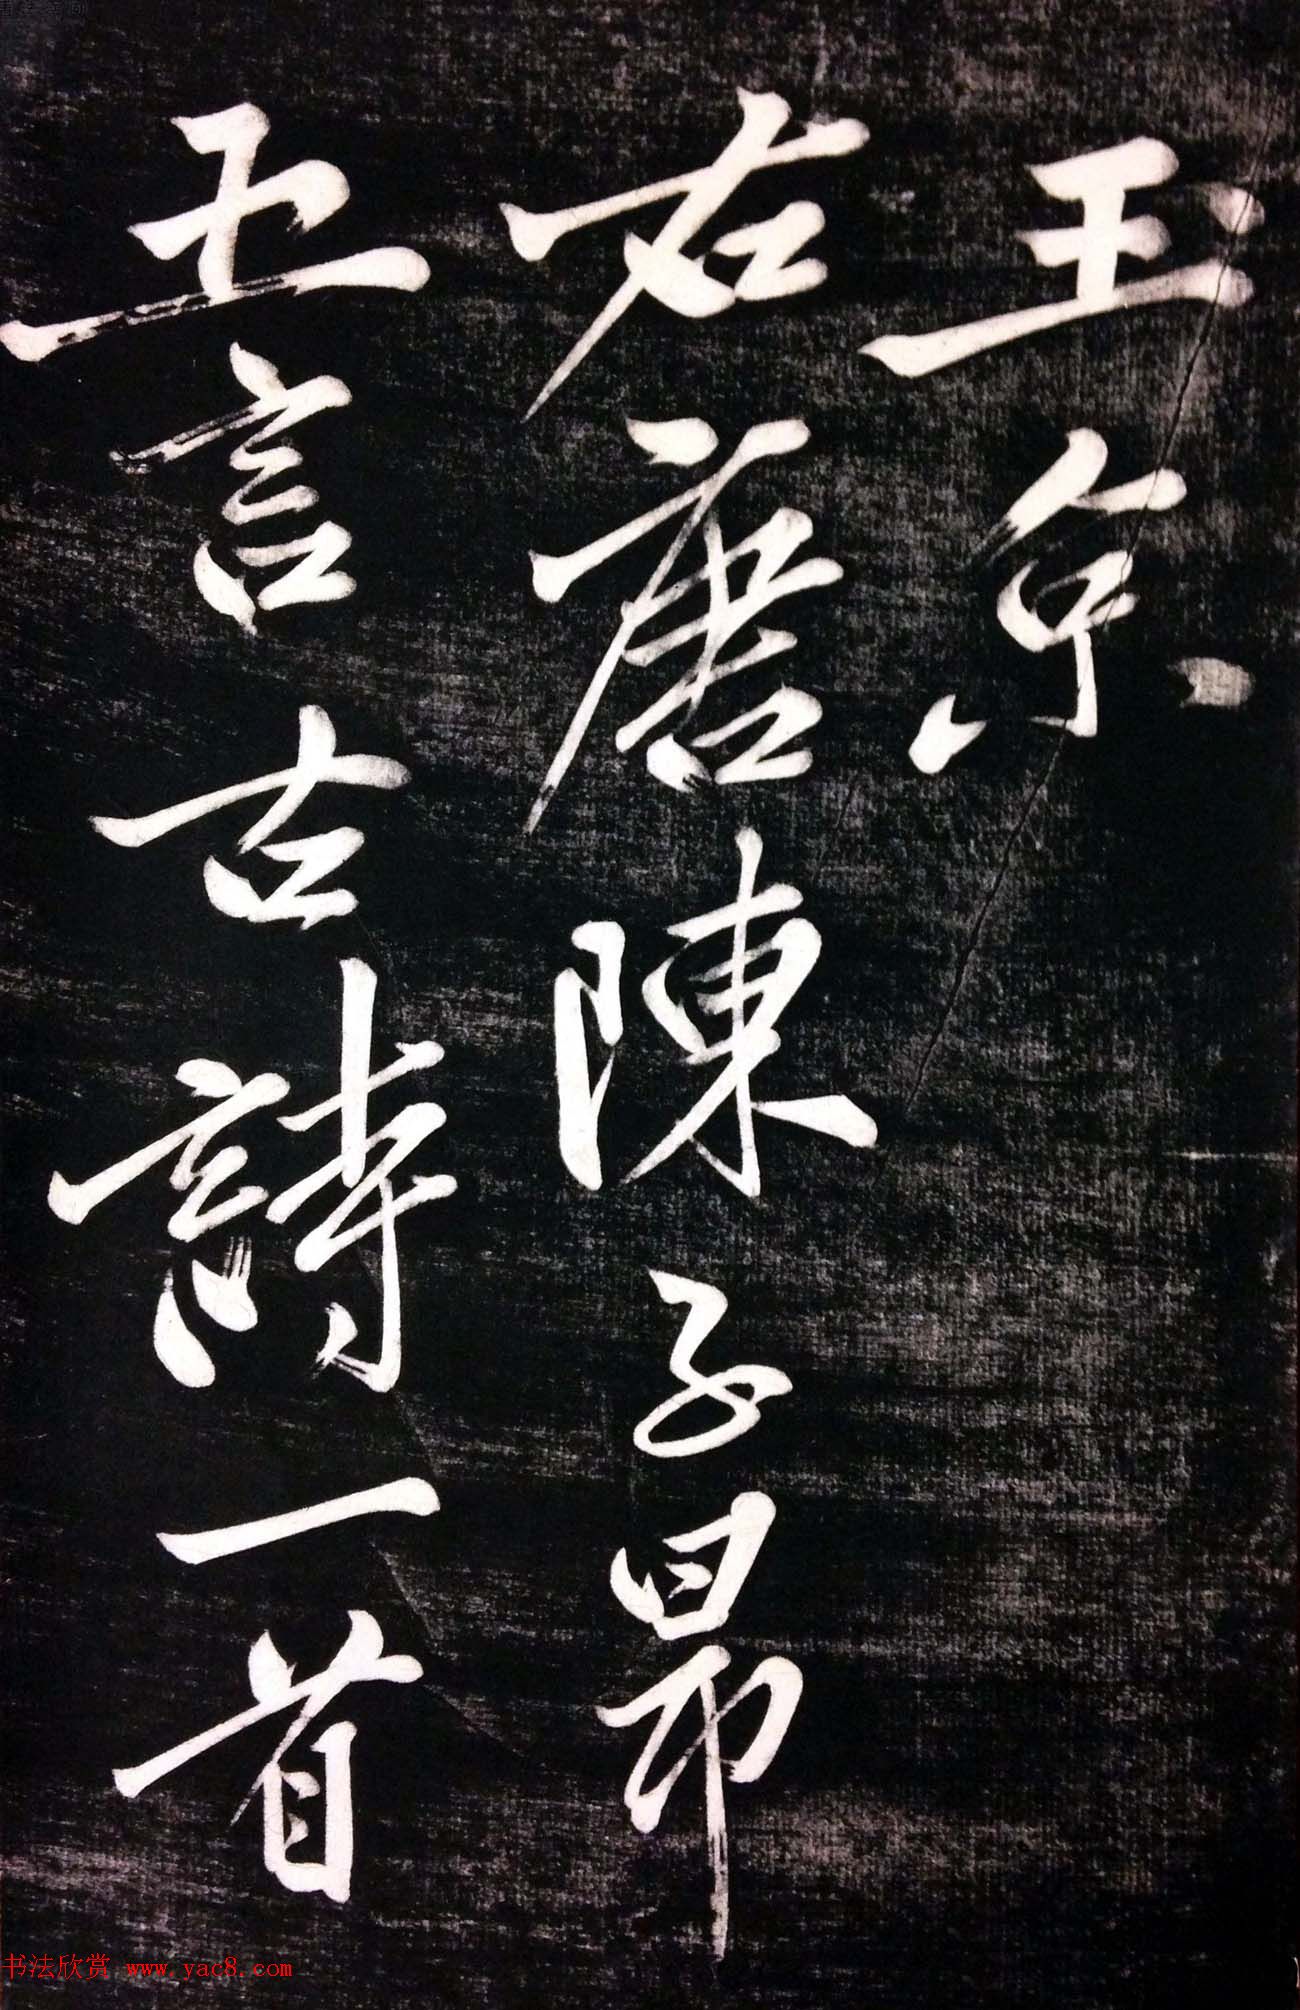 玉京
右唐陳子昂
五言古詩一首
书法欣赏 www.yac8.com